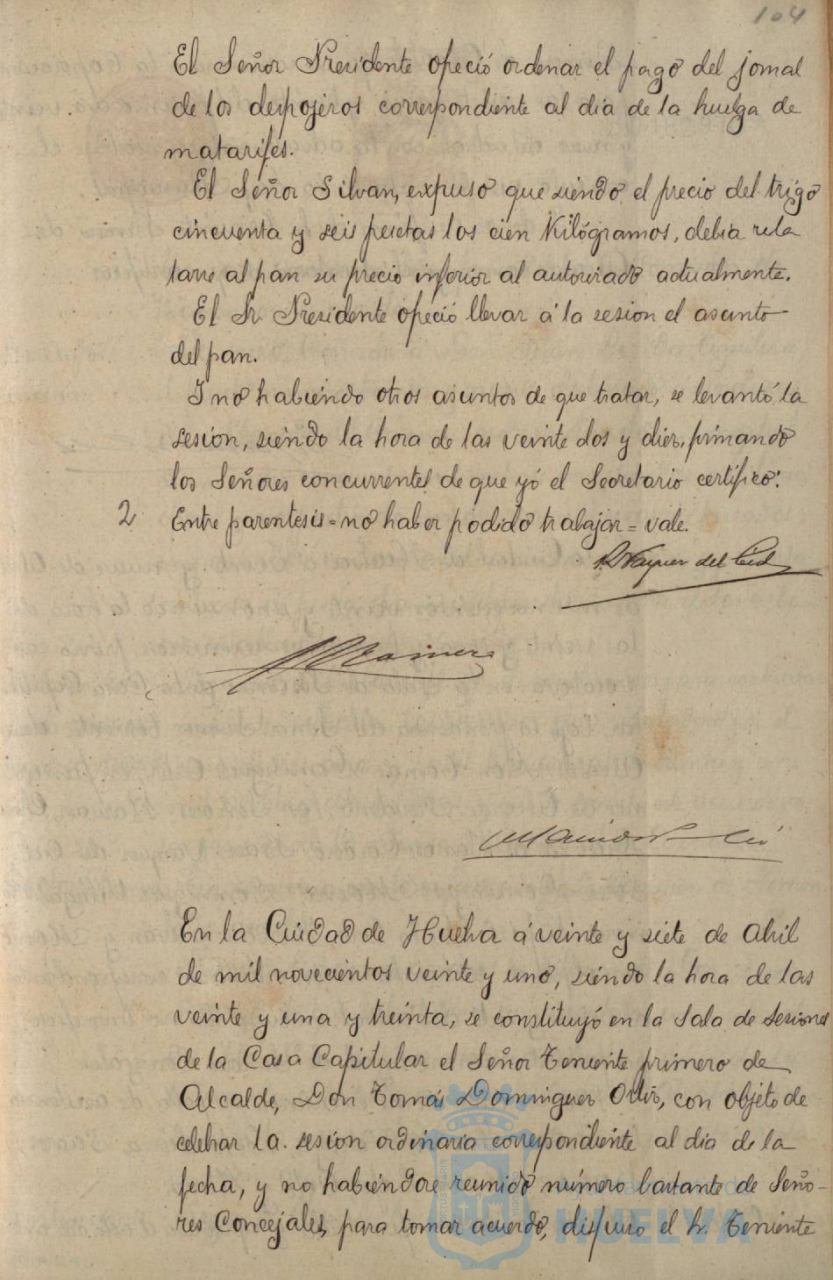 104
El Señor Presidente ofreció ordenar el pago del jornal
de los despojeros correspondiente al dia de la huelga de
matarifes.
El Señor Silvan, expuso que siendo el precio del trigo
cincuenta y seis pesetas los cien Kilógramos, debia
al pan su precio inferior al autorizado actualmente.
El Sr. Presidente ofreció llevar á la sesion el asunto
del pan.
Y no habiendo otros asuntos de que tratar, se levantó la
sesion, siendo la hora de las veinte dos y diez, firmando
los Señores concurrentes de que yó el Secretario certifico:
2 Entre parentesis = no haber podido trabajar = vale.
Vazquez del Cid
En la Ciudad de Huelva á veinte y siete de Abril
de mil novecientos veinte y uno, siendo la hora de las
veinte y una y treinta, se constituyó en la Sala de Sesiones
de la Casa Capitular el Señor Teniente primero de
Alcalde, Don Tomás Dominguez Ortiz, con objeto de
celebrar la sesion ordinaria correspondiente al dia de la
fecha, y no habiendose reunido número bastante de Seño-
res Concejales, para tomar acuerdo, dispuso el Sr. Teniente
HUELVA